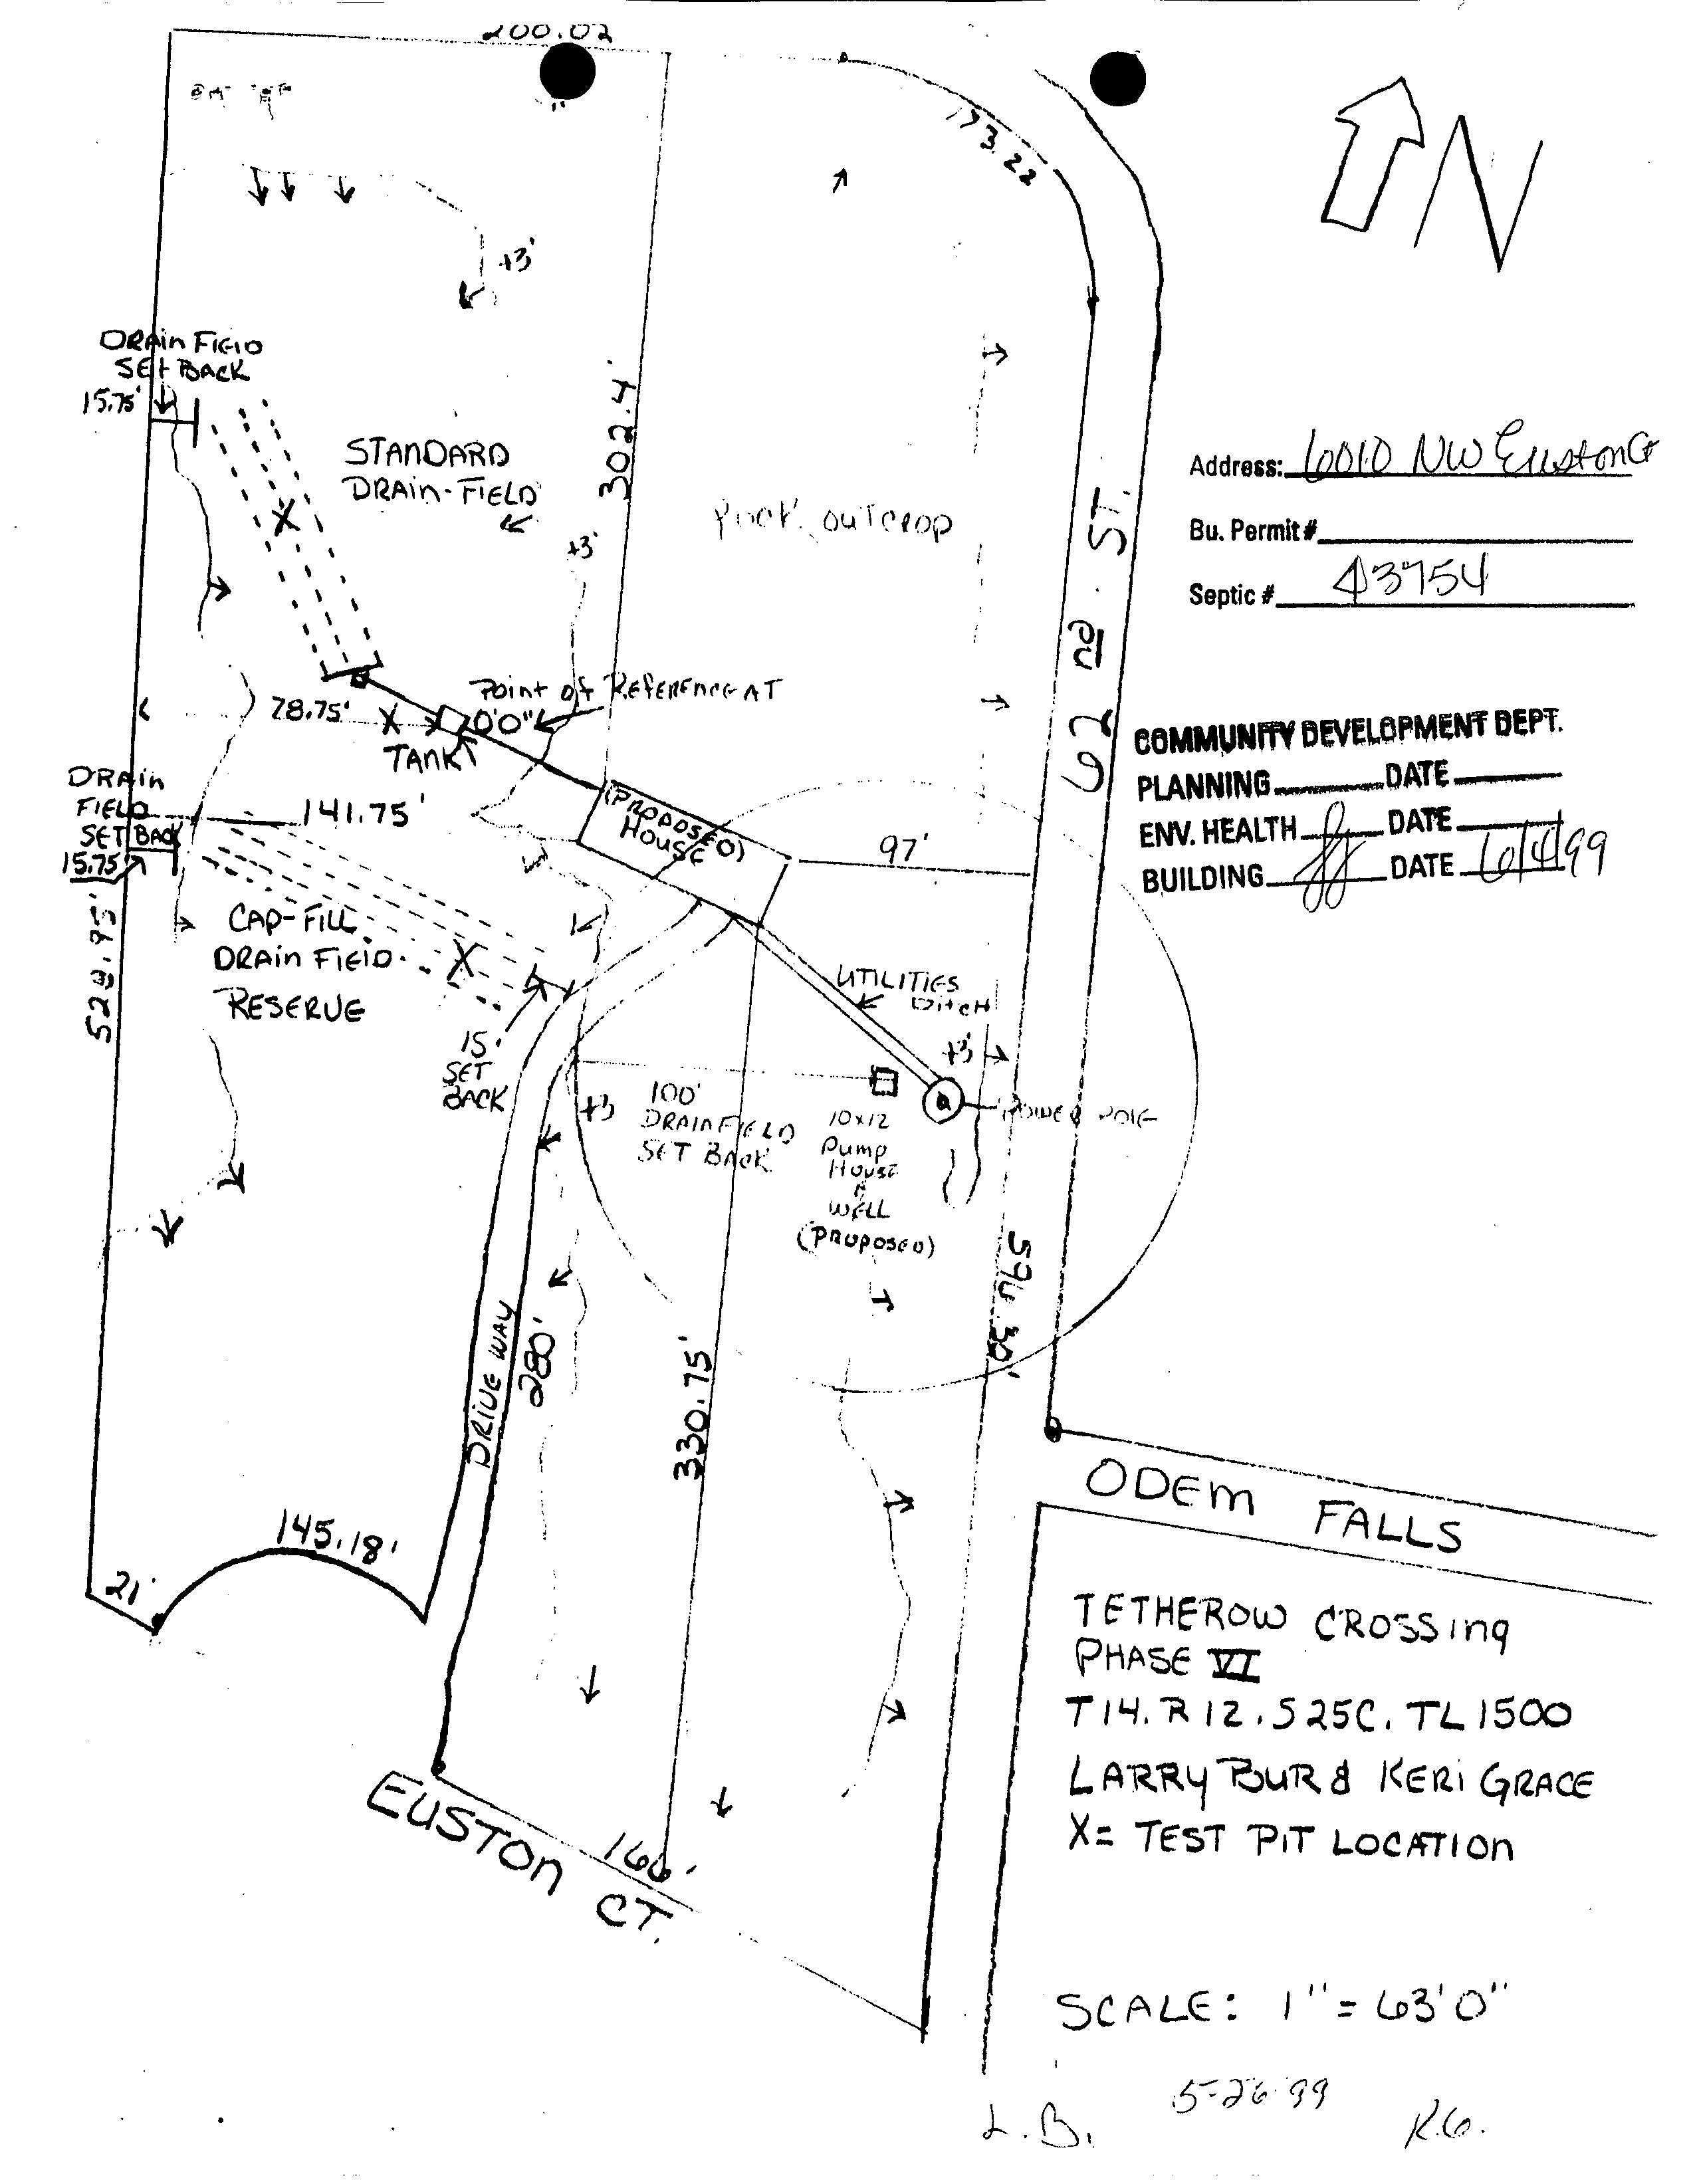 200.02
173.22
N
+3'
DRAIN FIELD
SET BACK
15.75'
302.4'
STANDARD
DRAIN-FIELD
+3'
OUTCROP
62 nd. ST.
Address: 6010 NW Euston Ct
Bu. Permit #
Septic # 43754
Point of REFERENCE AT
78.75' X 0'0"
TANK
COMMUNITY DEVELOPMENT DEPT.
PLANNING DATE
ENV. HEALTH DATE
BUILDING DATE 6/4/99
DRAIN
FIELD
SET BACK
15.75'
141.75'
(PROPOSED)
HOUSE
97'
528.95'
CAP-FILL
DRAIN FIELD
RESERVE
X
15'
SET
BACK
UTILITIES
DITCH
+3'
POWER POLE
+3
100'
DRAINFIELD
SET BACK
10x12
PUMP
HOUSE
WELL
(PROPOSED)
596.30'
DRIVE WAY
280'
330.75'
145.18'
21'
ODEM FALLS
EUSTON CT.
166'
TETHEROW CROSSING
PHASE VI
T14. R12. S25C. TL1500
LARRY BUR & KERI GRACE
X= TEST PIT LOCATION
SCALE: 1" = 63'0"
5-26-99
L.B.
K.G.